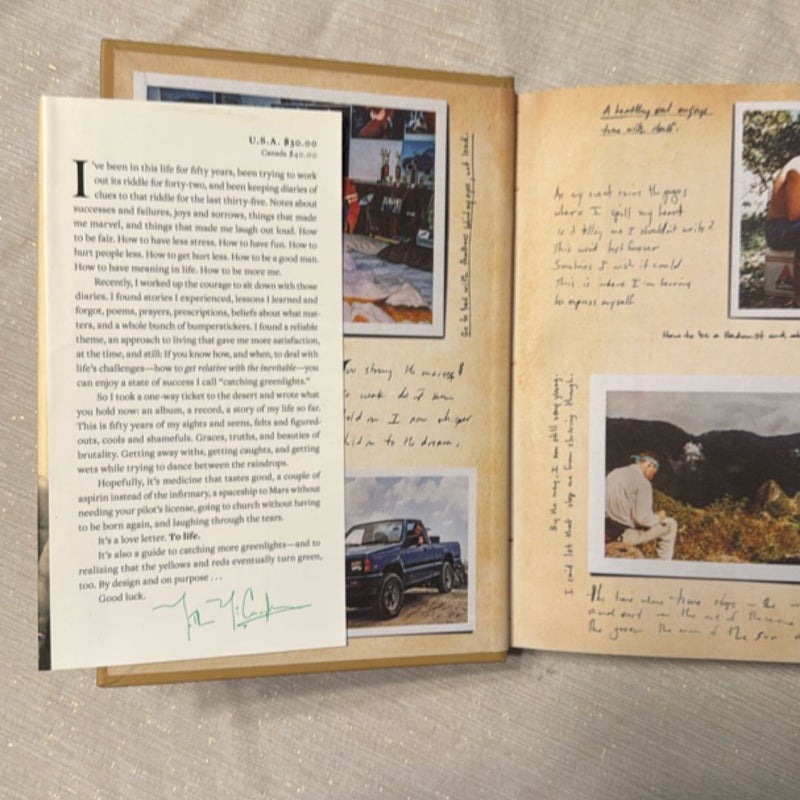 U.S.A. $30.00
Canada $40.00
I've been in this life for fifty years, been trying to work
out its riddle for forty-two, and been keeping diaries of
clues to that riddle for the last thirty-five. Notes about
successes and failures, joys and sorrows, things that made
me marvel, and things that made me laugh out loud. How
to be fair. How to have less stress. How to have fun. How to
hurt people less. How to get hurt less. How to be a good man.
How to have meaning in life. How to be more me.
Recently, I worked up the courage to sit down with those
diaries. I found stories I experienced, lessons I learned and
forgot, poems, prayers, prescriptions, beliefs about what mat-
ters, and a whole bunch of bumperstickers. I found a reliable
theme, an approach to living that gave me more satisfaction,
at the time, and still: If you know how, and when, to deal with
life's challenges—how to get relative with the inevitable—you
can enjoy a state of success I call "catching greenlights."
So I took a one-way ticket to the desert and wrote what
you hold now: an album, a record, a story of my life so far.
This is fifty years of my sights and seens, felts and figured-
outs, cools and shamefuls. Graces, truths, and beauties of
brutality. Getting away withs, getting caughts, and getting
wets while trying to dance between the raindrops.
Hopefully, it's medicine that tastes good, a couple of
aspirin instead of the infirmary, a spaceship to Mars without
needing your pilot's license, going to church without having
to be born again, and laughing through the tears.
It's a love letter. To life.
It's also a guide to catching more greenlights—and to
realizing that the yellows and reds eventually turn green,
too. By design and on purpose . . .
Good luck.
Go to bed with
to the dream.
A healthy and
time with
As my sweat rains the pages
where I spill my heart
is it telling me I shouldn't write?
This won't last forever
Sometimes I wish it could
This is where I'm learning
to express myself
How to be a
By the way, I am still very young.
I can't let that stop me from striving though.
the time where time stops – the
and
the green the
of the sun